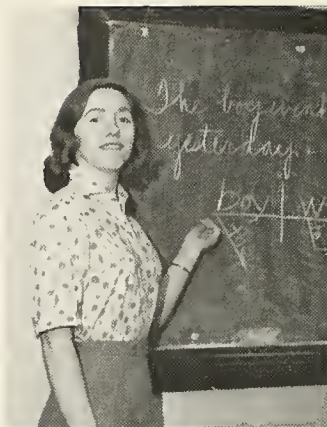 The boy went
yesterday.
boy | w
The